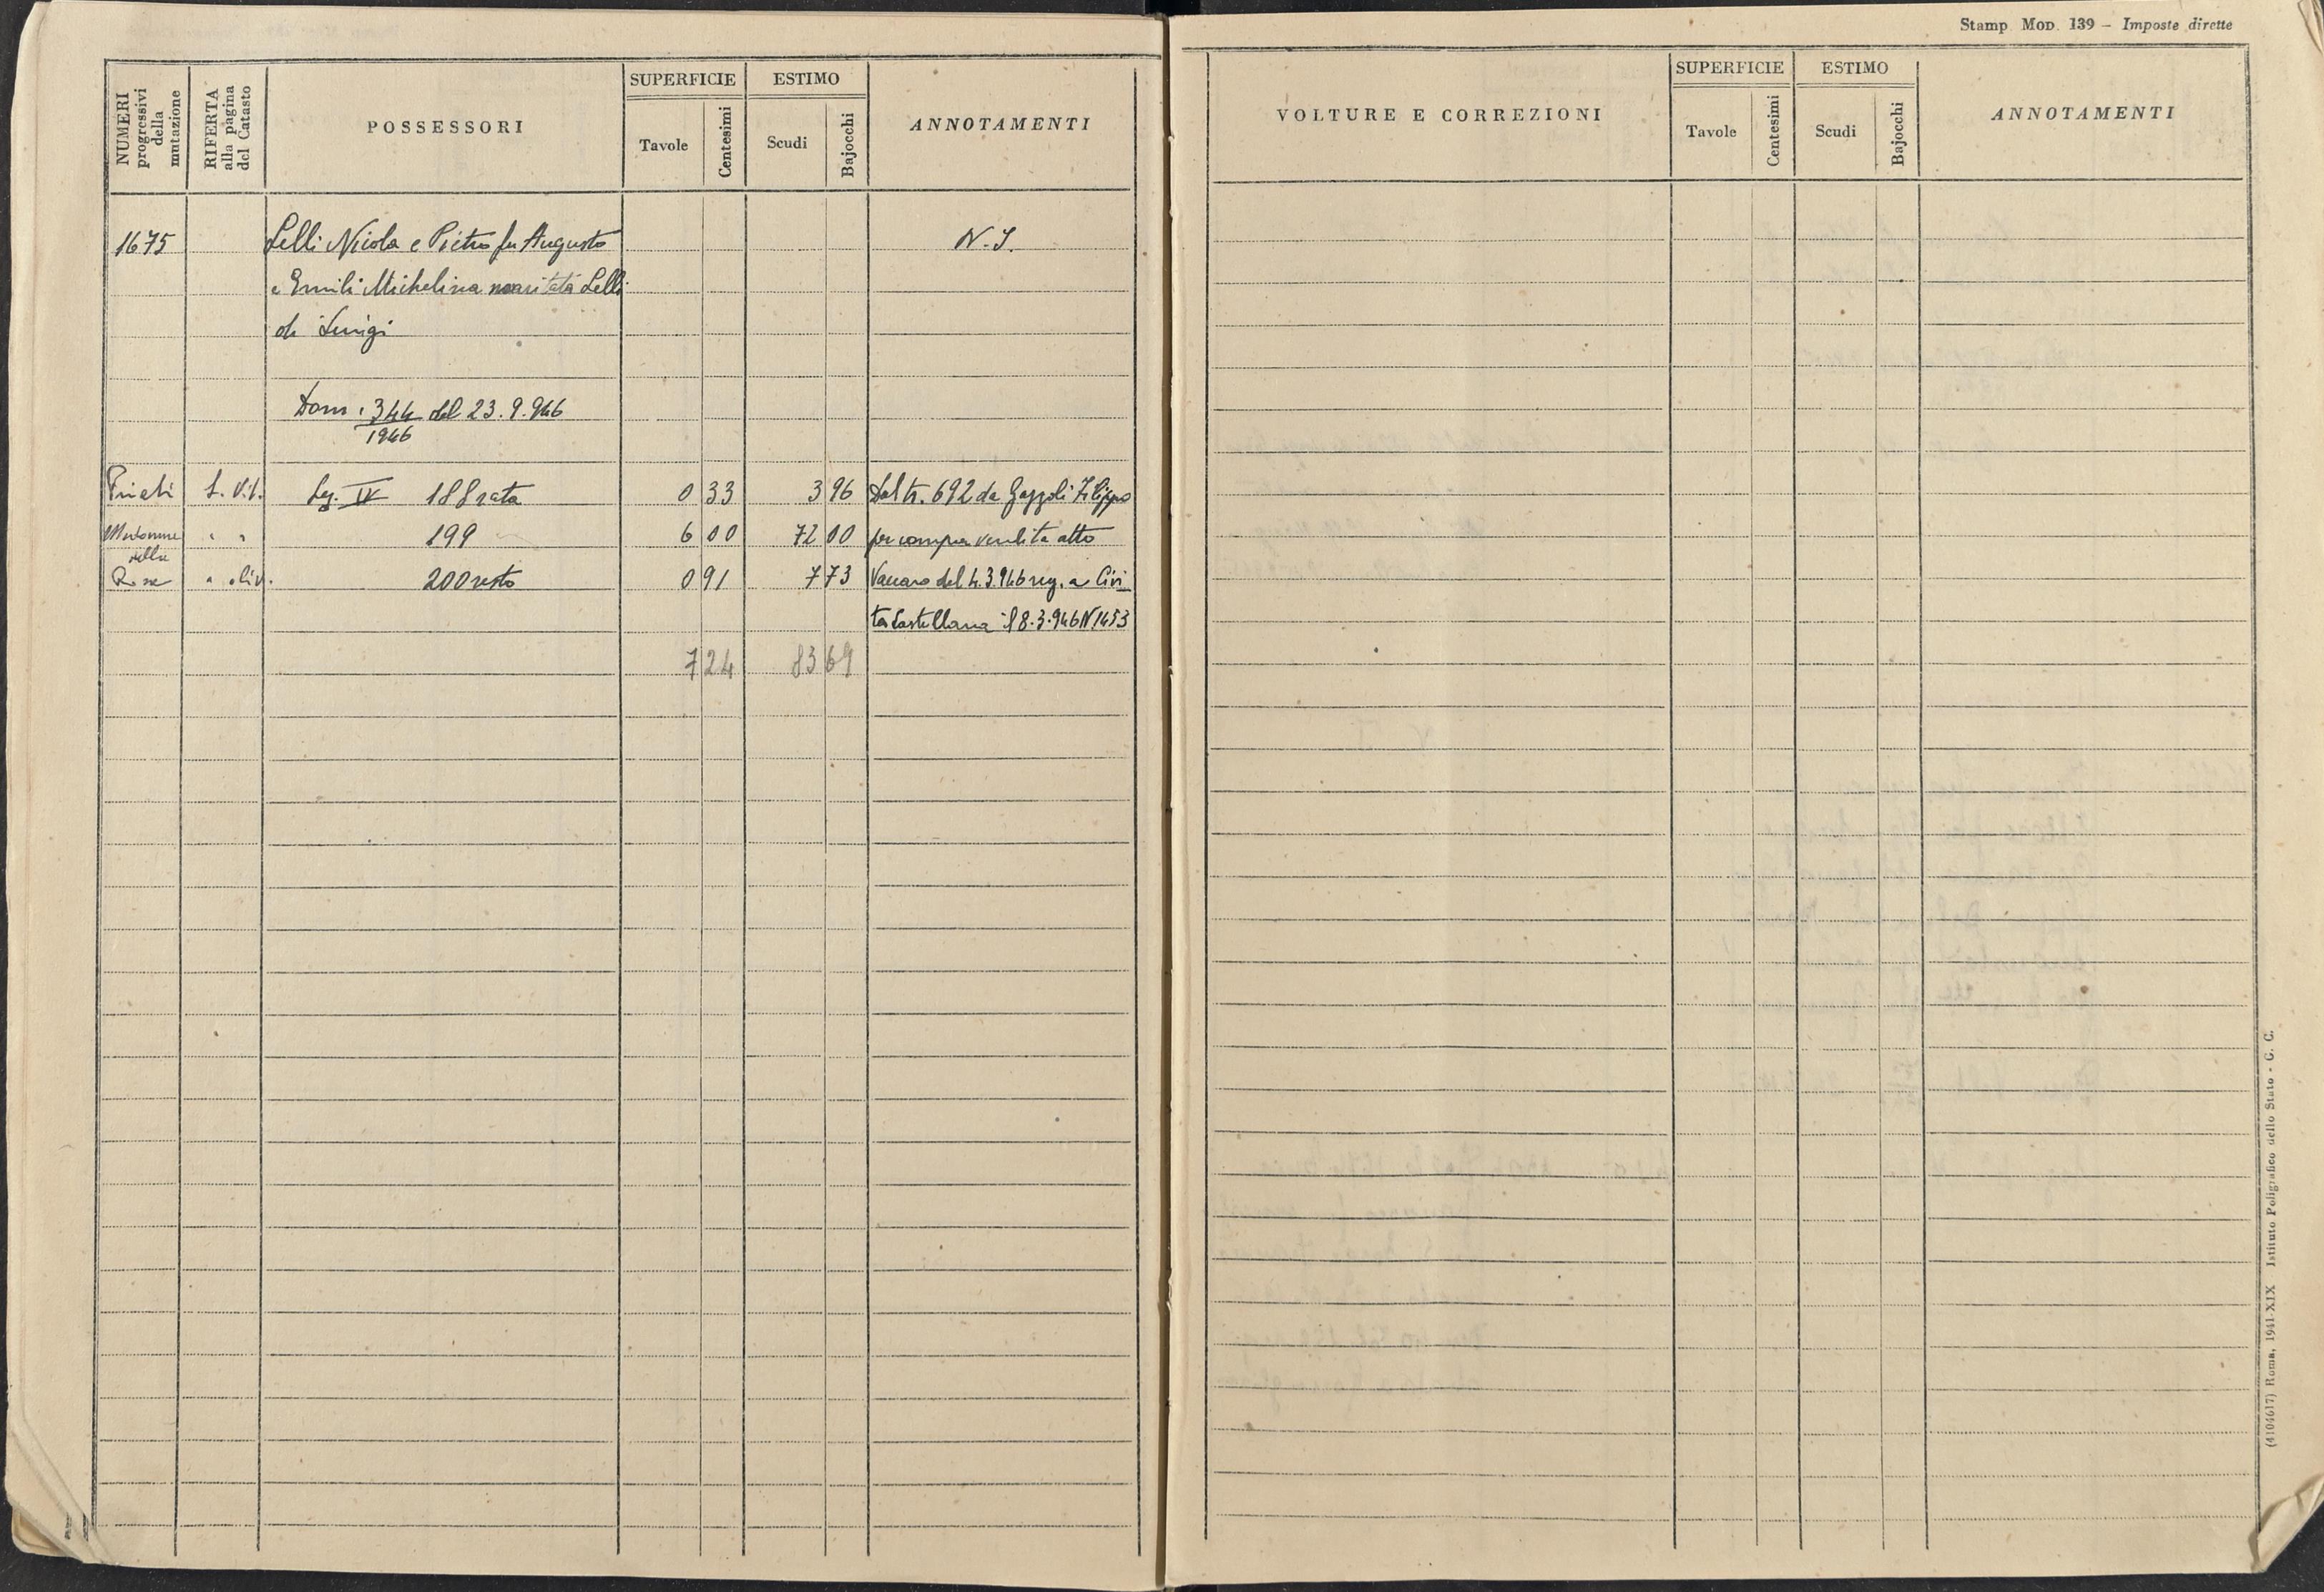 NUMERI progressivi della mutazione
RIFERTA alla pagina del Catasto
POSSESSORI
SUPERFICIE
Tavole
Centesimi
ESTIMO
Scudi
Bajocchi
ANNOTAMENTI
1675 Lelli Nicola e Pietro fu Augusto N.S.
e Emili Michelina maritata Lelli
di Luigi
Dom. 344 del 23.9.946
1946
S. Vit. Sez. IV 188 rata 0 33 3 96 Dal tr. 692 da Gazzoli Filippo
" " 199 6 00 72 00 per compra vendita atto
della
" oliv. 200 resto 0 91 7 73 Vaccaro del 4.3.946 reg. a Civi
ta Castellana il 8.3.946 N 1453
7 24 83 69
Stamp. MOD. 139 – Imposte dirette
VOLTURE E CORREZIONI
SUPERFICIE
Tavole
Centesimi
ESTIMO
Scudi
Bajocchi
ANNOTAMENTI
(4104617) Roma, 1941-XIX Istituto Poligrafico dello Stato - G. C.